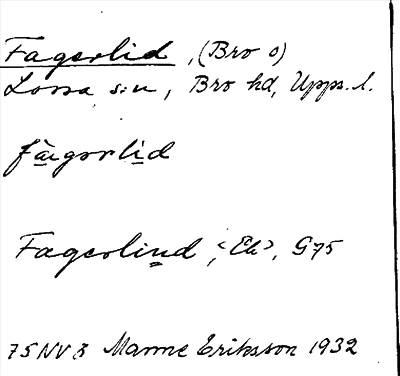 Fagerlid, (Bro o)
Lossa s:n, Bro hd, Upps. l.
fà̱gərlì̱d
Fagerlind, <Ek>, G75
75 NV 3 Manne Eriksson 1932